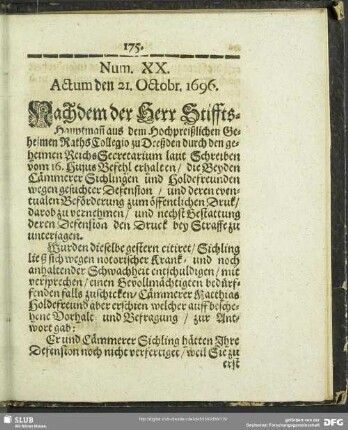 175.
Num. XX.
Actum den 21. Octobr. 1696.
Nachdem der Herr Stiffts-
Hauptmañ aus dem Hochpreißlichen Ge-
heimen Raths Collegio zu Dreßden durch den ge-
heimen Reichs Secretarium laut Schreiben
vom 16. Hujus Befehl erhalten / die Beyden
Cämmerer Sichlingen und Holdefreunden
wegen gesuchter Defension / und deren even-
tualen Beförderung zum öffentlichen Druk/
darob zu vernehmen / und nechst Gestattung
deren Defension den Druck bey Straffe zu
untersagen.
Wurden dieselbe gestern citiret / Sichling
ließ sich wegen notorischer Krank- und noch
anhaltender Schwachheit entschuldigen / mit
versprechen / einen Gevollmächtigten bedürf-
fenden falls zuschicken / Cämmerer Matthias
Holdefreund aber erschien welcher auff besche-
hene Vorhalt und Befragung / zur Ant-
wort gab:
Er und Cämmerer Sichling hätten Ihre
Defension noch nicht verfertiget / weil Sie zu
erst
SLUB
Wir führen Wissen.
gefördert von der
Deutschen Forschungsgemeinschaft
DFG